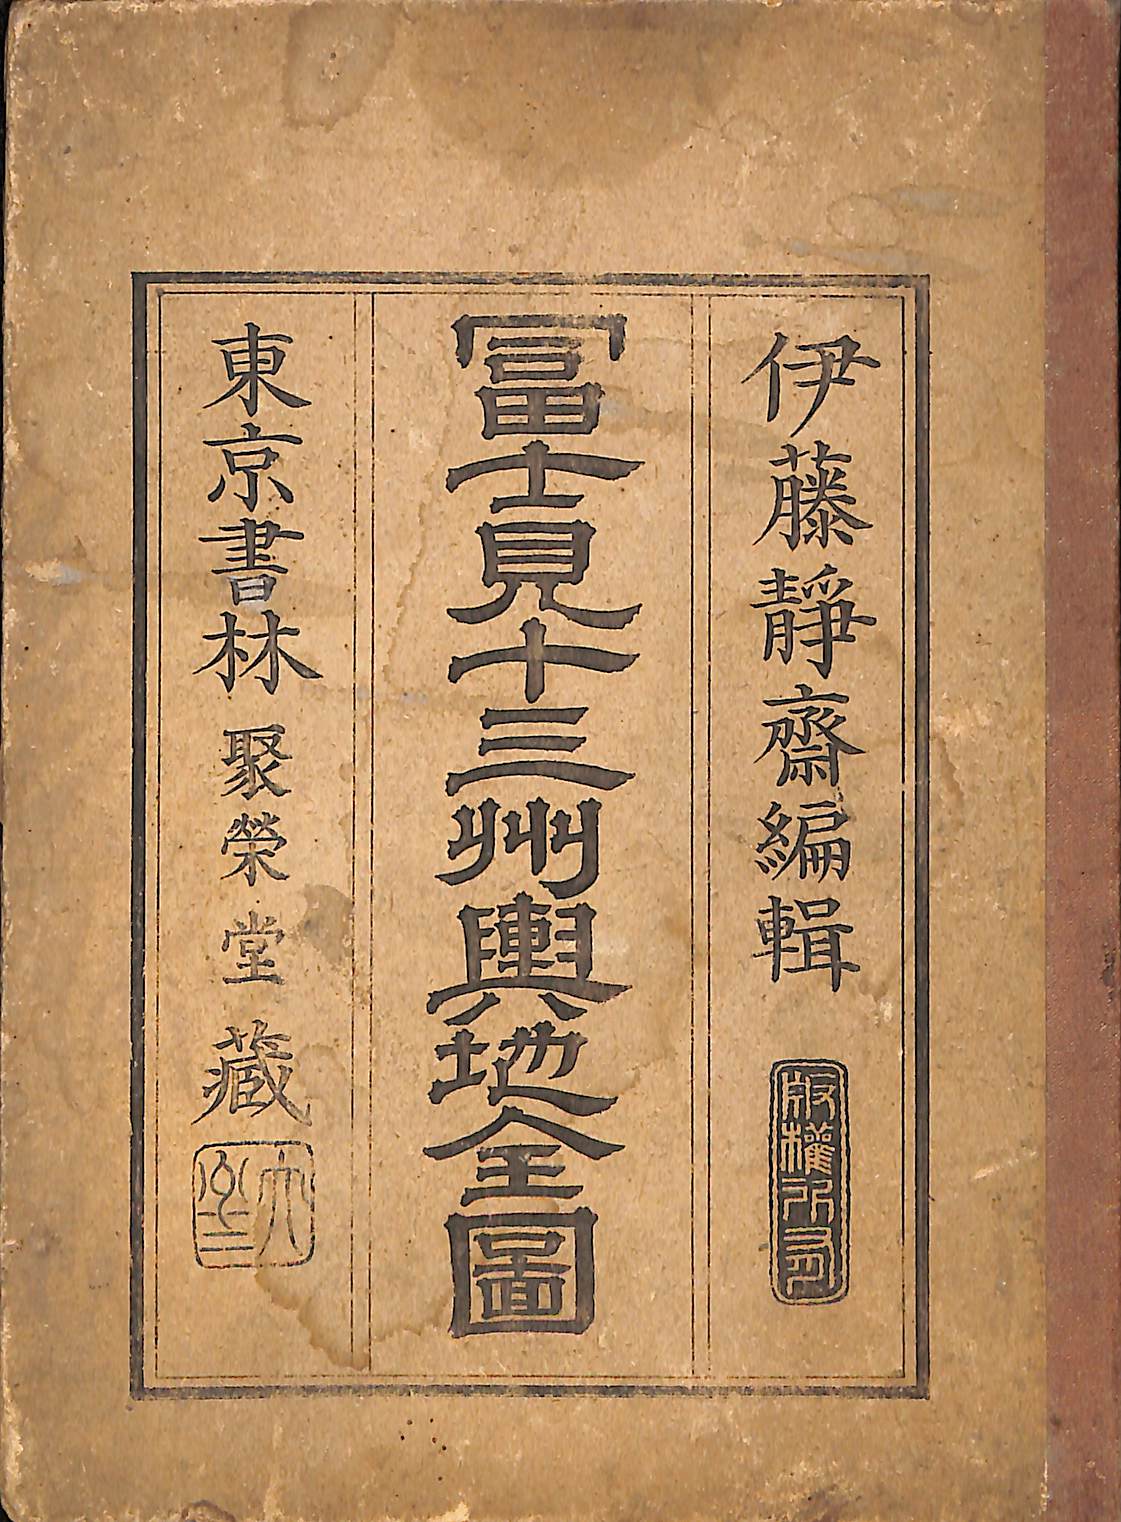 伊藤靜齋編輯
版權所有
冨士見十三州輿地全圖
東京書林 聚榮堂 藏